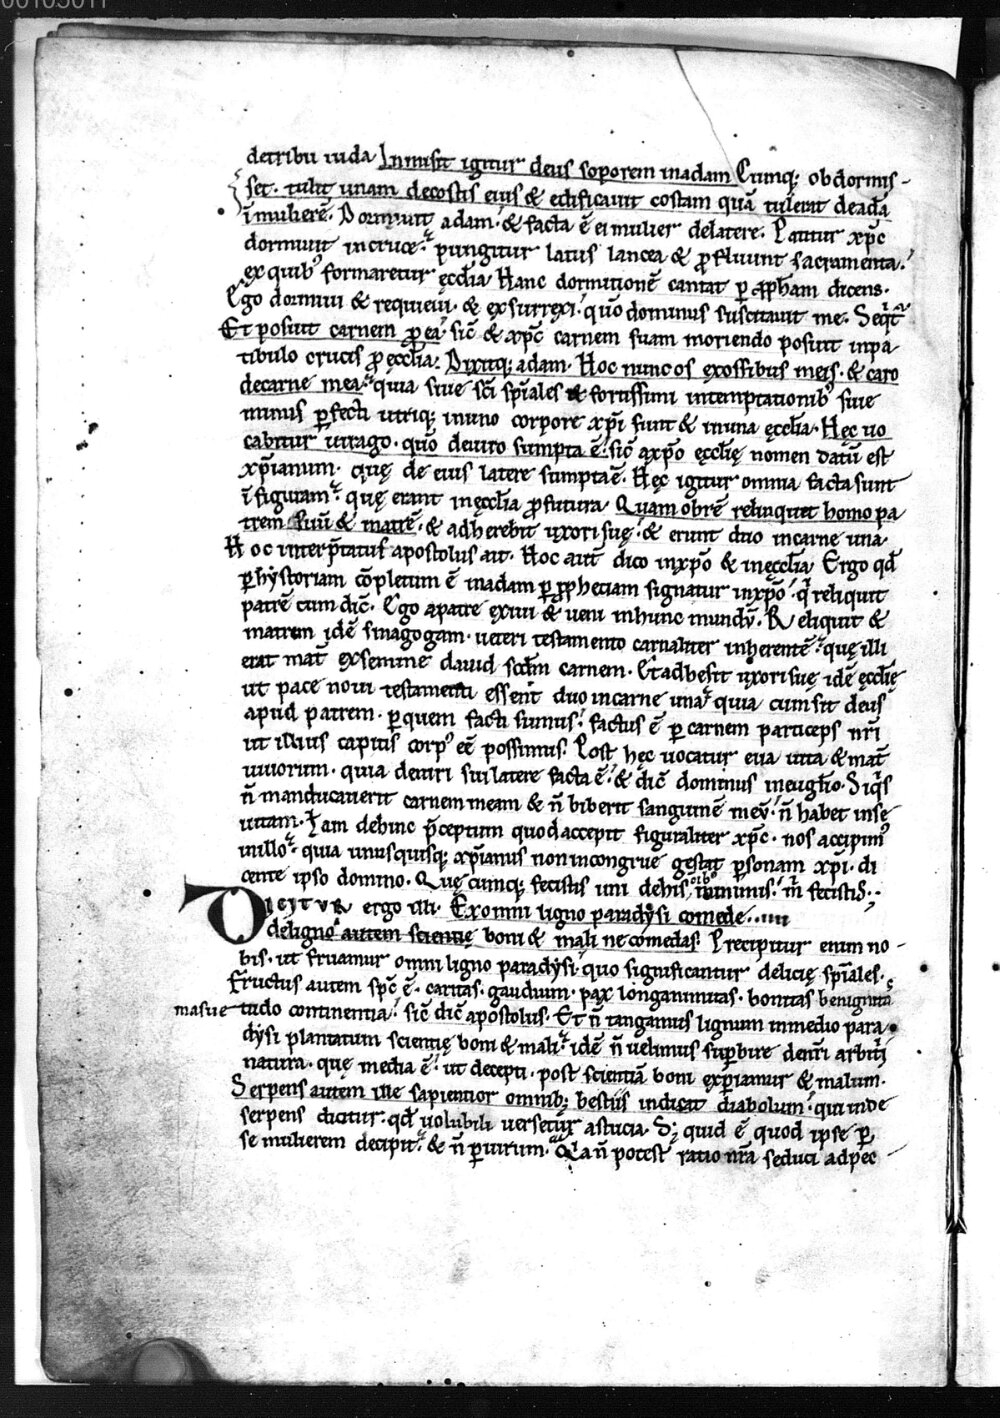 00105011
de tribu iuda Inmisit igitur deus soporem inadam Cumq; obdormis-
set. tulit unam decostis eius & edificauit costam quā tulerat deadā
ī mulierē. Dormiuit adam. & facta ē ei mulier delatere. Patitur xp̄c
dormiuit incruce. pungitur latus lancea & ꝓfluunt sacramenta.
ex quib' formaretur ęcclīa Hanc dormitionē cantat ꝑ ꝓph̄am dicens.
Ego dormiui & requieui. & exsurrexi. quō dominus suscitauit me. Seqt̄
Et posuit carnem ꝓ ea. sic̄ & xp̄c carnem suam moriendo posuit inpa
tibulo crucis ꝓ ęcclīa. Dixitq; adam. Hoc nunc os exossibus meis. & caro
decarne mea. quia siue sc̄i sp̄iales & fortissimi intemptationib' siue
minus ꝑfecti utriq; inuno corpore xp̄i sunt & inuna ęcclīa. Hęc uo
cabitur uirago. quō deuiro sumpta ē. sic̄ axp̄o ęcclīę nomen datū est
xp̄ianum. quę de eius latere sumpta ē. Hęc igitur omnia facta sunt
ī figuram. quę erant inęcclīa ꝓfutura. Quam obrē relinquet homo pa
trem suū & matrē. & adherebit uxori suę. & erunt duo incarne una.
Hoc interp̄tatus apostolus ait. Hoc aut̄ dico inxp̄o & inęcclīa Ergo qd̄
ꝑ hystoriam cōpletum ē inadam ꝑ ꝓphetiam signatur inxp̄o. q̄ reliquit
patrē cum dic̄. Ego apatre exiui & ueni inhunc mundū. Reliquit &
matrem idē sinagogam. ueteri testamento carnaliter inherentē. quę illi
erat mat̄ exsemine dauid scd̄m carnem. Et adhesit uxori suę idē ęcclīę
ut pace noui testamenti essent duo incarne una. quia cum sit deus
apud patrem. ꝑ quem facti sumus. factus ē ꝑ carnem particeps nr̄i
ut illius capitis corp' eē possimus. Post hęc uocatur eua uita & mat̄
uiuorum. quia deuiri sui latere facta ē. & dic̄ dominus ineuḡlio. Siq̄s
n̄ manducauerit carnem meam & n̄ biberit sanguinē meū. n̄ habet inse
uitam. Iam dehinc p̄ceptum quod accepit figuraliter xp̄c. nos accipim'
inillo. quia unusquisq; xp̄ianus non incongrue gestat ꝑsonam xp̄i. di
cente ipso domino. Quęcumq; fecistis uni dehis minimis. m̄ fecistis.
DICITVR ergo illi. Ex omni ligno paradysi comede....
deligno autem scientię boni & mali ne comedas. Precipitur enim no-
bis. ut fruamur omni ligno paradysi. quo significantur delicię sp̄iales.
Fructus autem sp̄c ē. caritas. gaudium. pax longanimitas. bonitas benignita
masue tudo continentia. sic̄ dic̄ apostolus. Et n̄ tangamus lignum inmedio para
dysi plantatum scientię boni & mali. idē n̄ uelimus suꝑbire denr̄i arbitrij
natura. quę media ē. ut decepti. post scientiā boni exꝑiamur & malum.
Serpens autem ille sapientior omnib; bestiis indicat diabolum. qui inde
serpens dicitur. qd̄ uolubili uersetur astucia. S; quid ē quod ipse ꝑ
se mulierem decipit. & n̄ ꝑ uirum. Q̄a n̄ potest ratio nr̄a seduci adpec